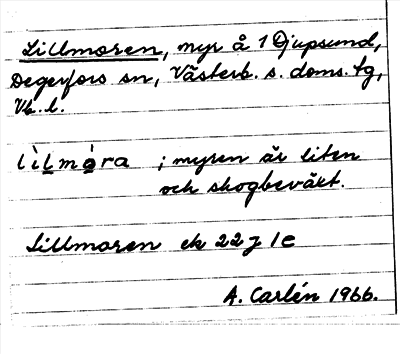 Lillmoren, myr å 1 Djupsund,
Degerfors sn, Västerb. s. doms. tg,
Vb. l.
lìlmòra ; myren är liten
och skogbeväxt.
Lillmoren ek 22J 1e
A. Carlén 1966.